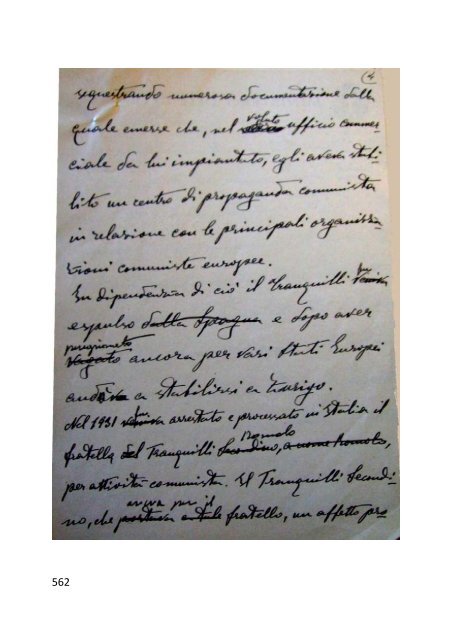 (4
sequestrando numerosa documentazione dalla
quale emerse che, nel voluto ufficio commer-
ciale da lui impiantato, egli aveva stabi-
lito un centro di propaganda comunista
in relazione con le principali organizza-
zioni comuniste europee.
In dipendenza di ciò il Tranquilli fu
espulso dalla Spagna e dopo aver
peregrinato
vagato ancora per vari Stati Europei
andò a stabilirsi a Zurigo.
Nel 1931 fu arrestato e processato in Italia il
fratello del Tranquilli Secondino, a nome Romolo,
Romolo
per attività comunista. Il Tranquilli Secondi-
aveva per il
no, che portava a tale fratello, un affetto pro
562